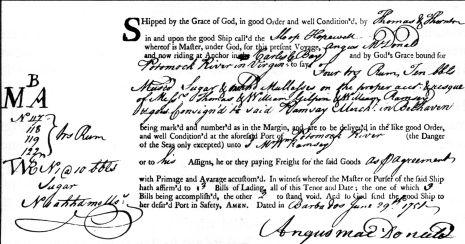 SHipped by the Grace of God, in good Order and well Condition'd, by Thomas & Thornton
in and upon the good Ship call'd the Sloop Hopewell
whereof is Master, under God, for this present Voyage, Angus McDonald
and now riding at Anchor in Carlisle Bay and by God's Grace bound for
Potomock River in Virginia to say Four trs Rum, Ten bbls
Musco Sugar & Mollasses on the proper acct & risque
of Messrs Thomas & William Ramsay
consign'd to said Ramsay Merch. in Belhaven
being mark'd and number'd as in the Margin, and are to be deliver'd in the like good Order,
and well Condition'd at the aforesaid Port of Potomock River (the Danger
of the Seas only excepted) unto Ramsay
or to his Assigns, he or they paying Freight for the said Goods as Agreement
with Primage and Avarage accustom'd. In witness whereof the Master or Purser of the said Ship
hath affirm'd to 3 Bills of Lading, all of this Tenor and Date; the one of which 3
Bills being accomplish'd, the other 2 to stand void. And so God send the good Ship to
her desir'd Port in Safety, AMEN. Dated in Barbados June 29th 1751
Angus mac Donald
B
M A
No 117
118
119
trs Rum
W No @ 10 bbls
Sugar